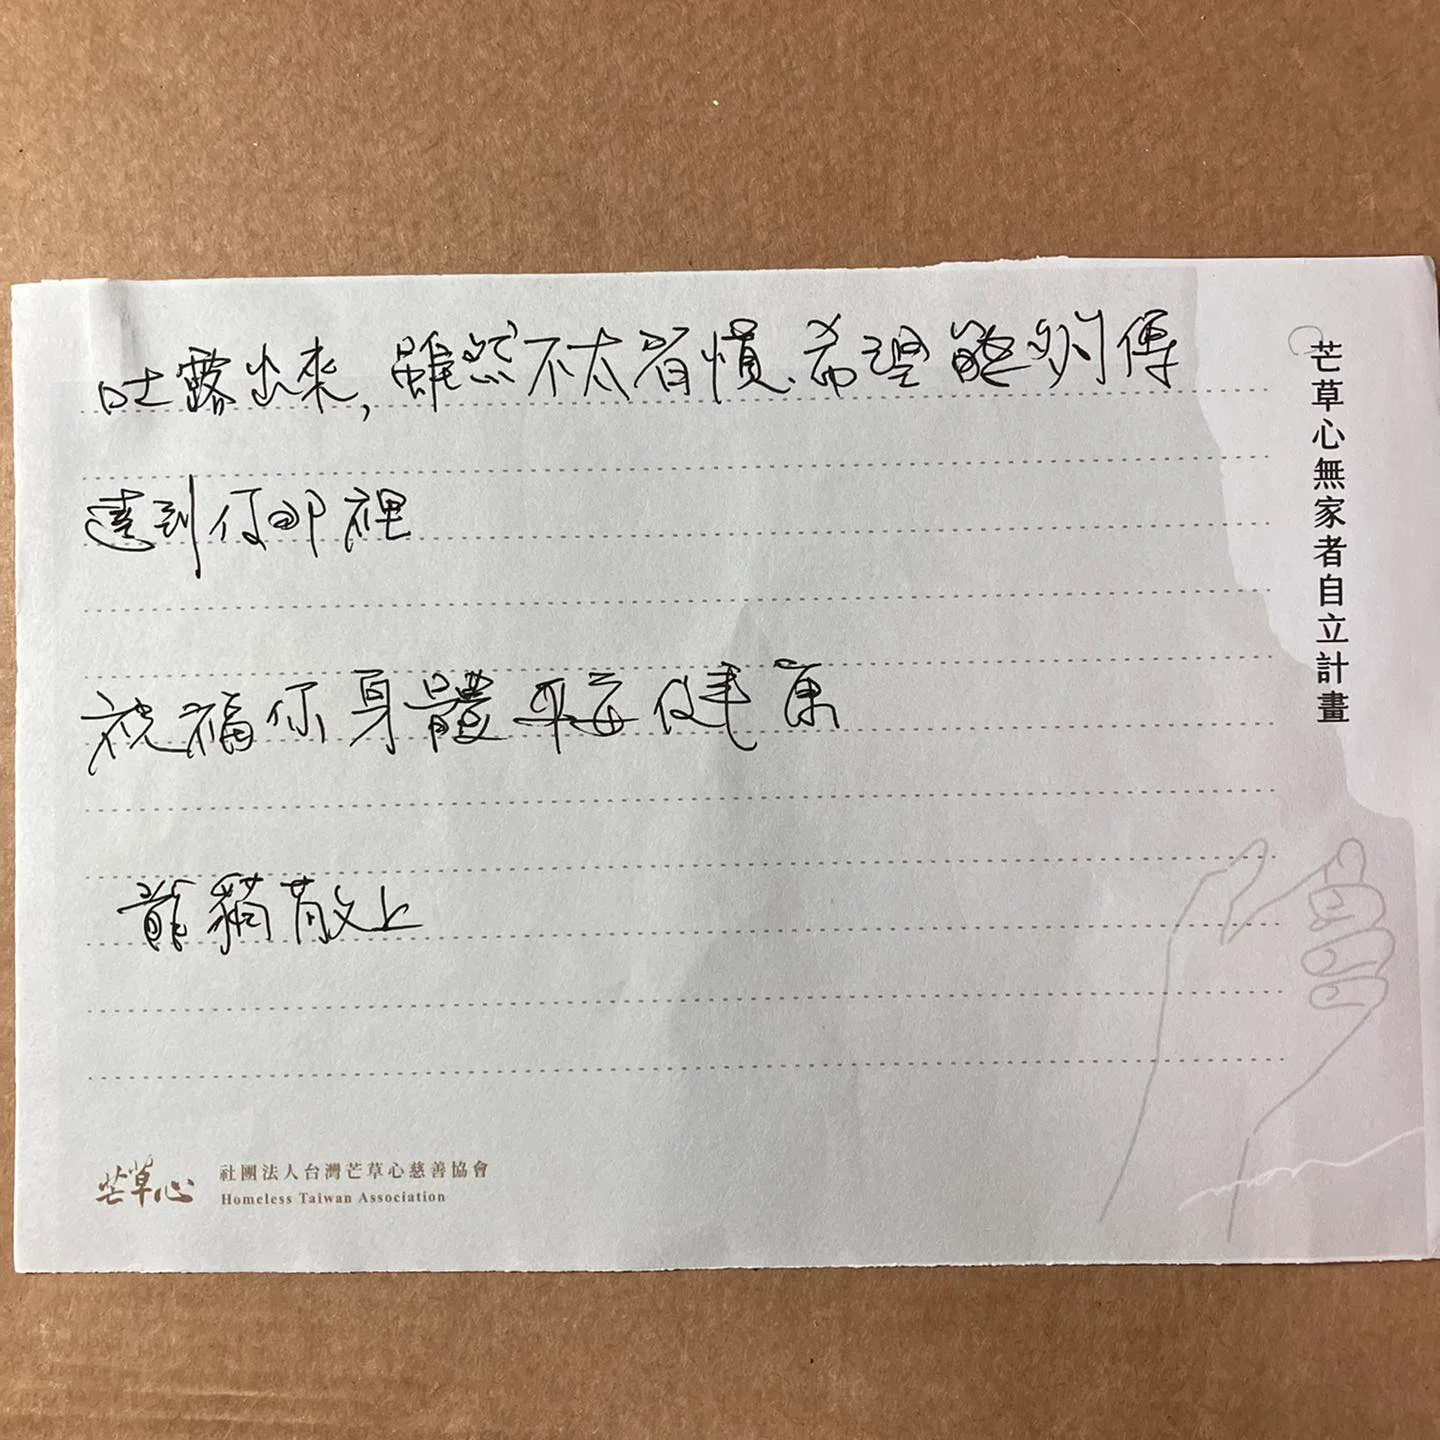 吐露出來,雖然不太習慣、希望能夠傳
達到你那裡
祝福你身體平安健康
龍貓敬上
芒草心無家者自立計畫
芒草心
社團法人台灣芒草心慈善協會
Homeless Taiwan Association